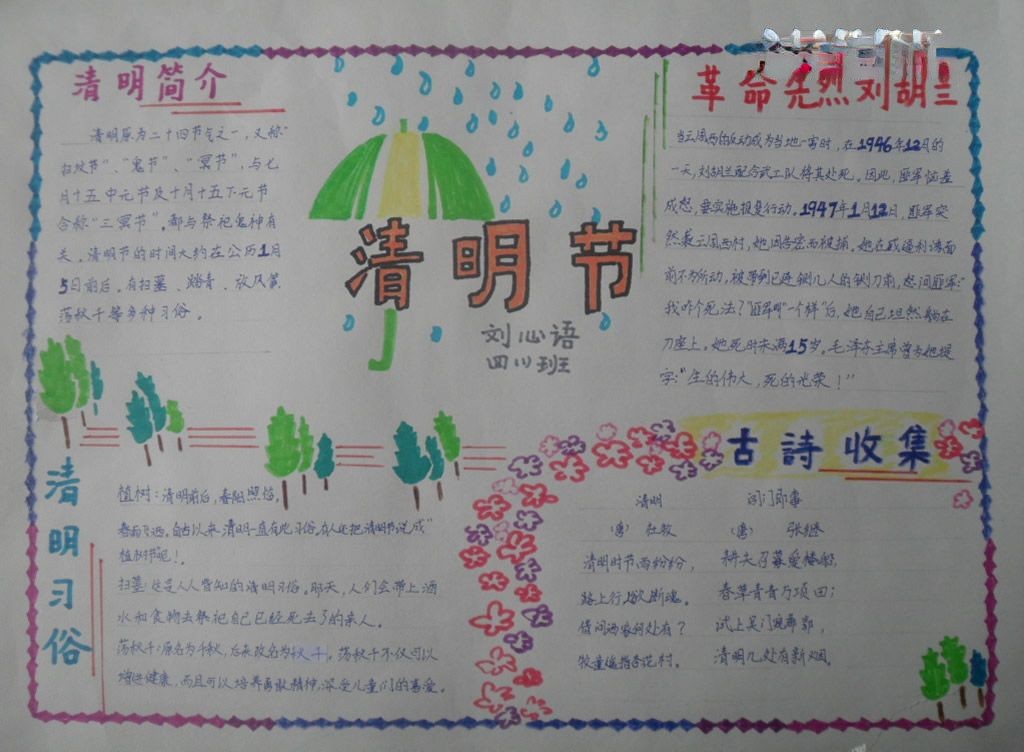 清明简介
清明原为二十四节气之一，又称“
扫坟节”、“鬼节”、“冥节”，与七
月十五中元节及十月十五下元节
合称“三冥节”，都与祭祀鬼神有
关，清明节的时间大约在公历1月
5日前后。有扫墓、踏青、放风筝
荡秋千等多种习俗。
清明节
刘心语
四(1)班
革命先烈刘胡兰
当云周西的反动成为当地一害时，在1946年12月的
一天，刘胡兰配合武工队将其处死。因此，匪军恼羞
成怒，要实施报复行动。1947年1月12日，匪军突
然袭云周西村，她因告密而被捕。她在威逼利诱面
前不为所动，被带到已连铡几人的铡刀前，怒问匪军：“
我咋个死法？”匪军吼“一个样”后，她自己坦然躺在
刀座上。她死时未满15岁。毛泽东主席曾为她提
字：“生的伟大，死的光荣！”
清明习俗
植树：清明前后，春阳照临，
春雨飞洒。自古以来，清明一直有此习俗。有人还把清明节说成“
植树节呢！
扫墓：这是人人皆知的清明习俗。那天，人们会带上酒
水和食物去祭祀自己已经死去了的亲人。
荡秋千：原名为千秋，后来改名为秋千。荡秋千不仅可以
增进健康，而且可以培养勇敢精神，深受儿童们的喜爱。
古詩收集
清明
（唐） 杜牧
清明时节雨纷纷，
路上行人欲断魂。
借问酒家何处有？
牧童遥指杏花村。
闾门即事
（唐） 张继
耕夫召募爱楼船，
春草青青万项田；
试上吴门窥郡郭，
清明几处有新烟。